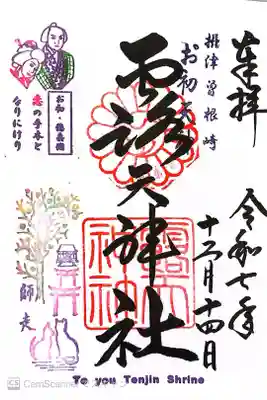 奉拝
令和七年
十二月十四日
摂津曽根崎
お初天神
露天神社
お初・徳兵衛
恋の手本と
なりにけり
師走
To you Tenjin Shrine
CS CamScanner